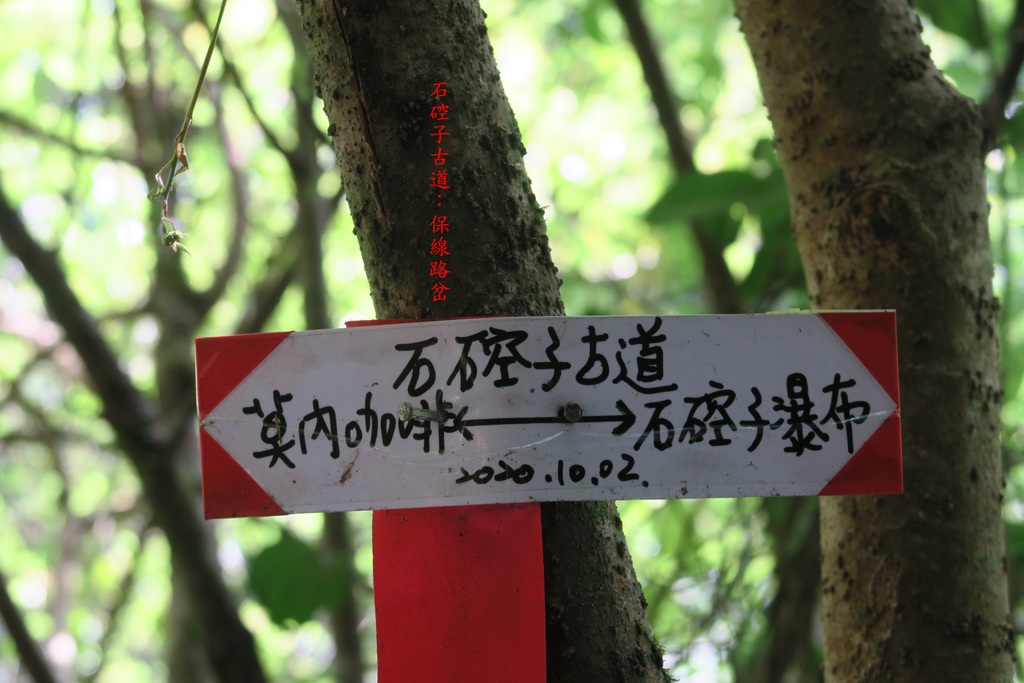 石硿子古道：保線路岔
石硿子古道
莫內咖啡 ←→ 石硿子瀑布
2020.10.02.